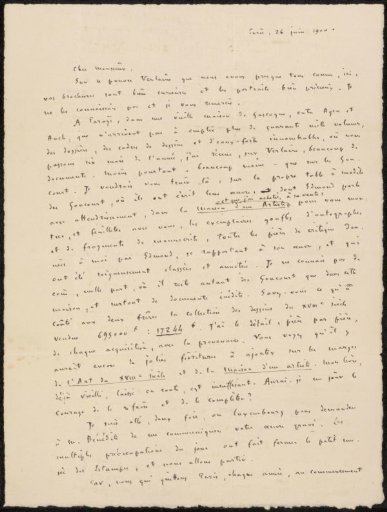 Paris, 26 juin 1900.
Cher Monsieur,
Sur ce pauvre Verlaine que nous avons presque tous connu, ici,
vos brochures sont bien curieuses et les portraits bien précieux. Je
ne les connaissais pas et je vous remercie.
A Parays, dans une vieille maison de Gascogne, entre Agen et
Auch, que n'arrivent pas à emplir plus de quarante mille volumes,
des dessins, des cadres de dessins et d'eaux-fortes innombrables, où nous
passons six mois de l'année, j'ai réuni, sur Verlaine, beaucoup de
documents, moins pourtant, beaucoup moins que sur les Gon-
court. Je voudrais vous tenir là, sur la propre table à modèle
des Goncourt, où ils ont écrit leur œuvre, dont Edmond parle
avec attendrissement, dans la Maison d'un Artiste, pour vous mon-
trer, et feuilleter avec vous, les exemplaires gonflés d'autographes
et de fragments de manuscrits, toutes les pièces de critique don-
nées à moi par Edmond, se rapportant à son œuvre, et qui
ont été soigneusement classées et annotées. Je ne connais pas de
coin, nulle part, où il reste autant des Goncourt que dans cette
maison, et surtout de documents inédits. Savez-vous ce qu'a
coûté aux deux frères la collection des dessins du XVIIIe siècle
vendue 695000 f ? 17244 f. J'ai le détail, pièce par pièce,
de chaque acquisition, avec la provenance. Vous voyez qu'il y
aurait encore de jolies fioritures à ajouter sur les marges
de l'Art du XVIIIe siècle et de la Maison d'un artiste. Mon livre,
déjà vieilli, laisse, en route, est insuffisant. Aurai-je un jour le
courage de le refaire et de le compléter ?
Je suis allé, deux fois, au Luxembourg pour demander
à M. Bénédite de me communiquer votre œuvre gravé. Les
multiples préoccupations du jour ont fait fermer le petit mu-
sée des Estampes, et nous allons partir.
Car, nous qui quittons Paris, chaque année, au commencement